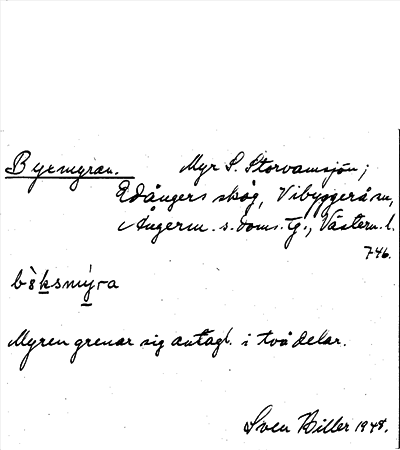 Byxmyran. Myr S. Storvamsjön;
Edångers skog, Vibyggerå sn,
Ångerm. s. doms. tg., Västern. l.
746.
bö̀ksmýra
Myren grenar sig antagl. i två delar.
Sven Biller 1948.